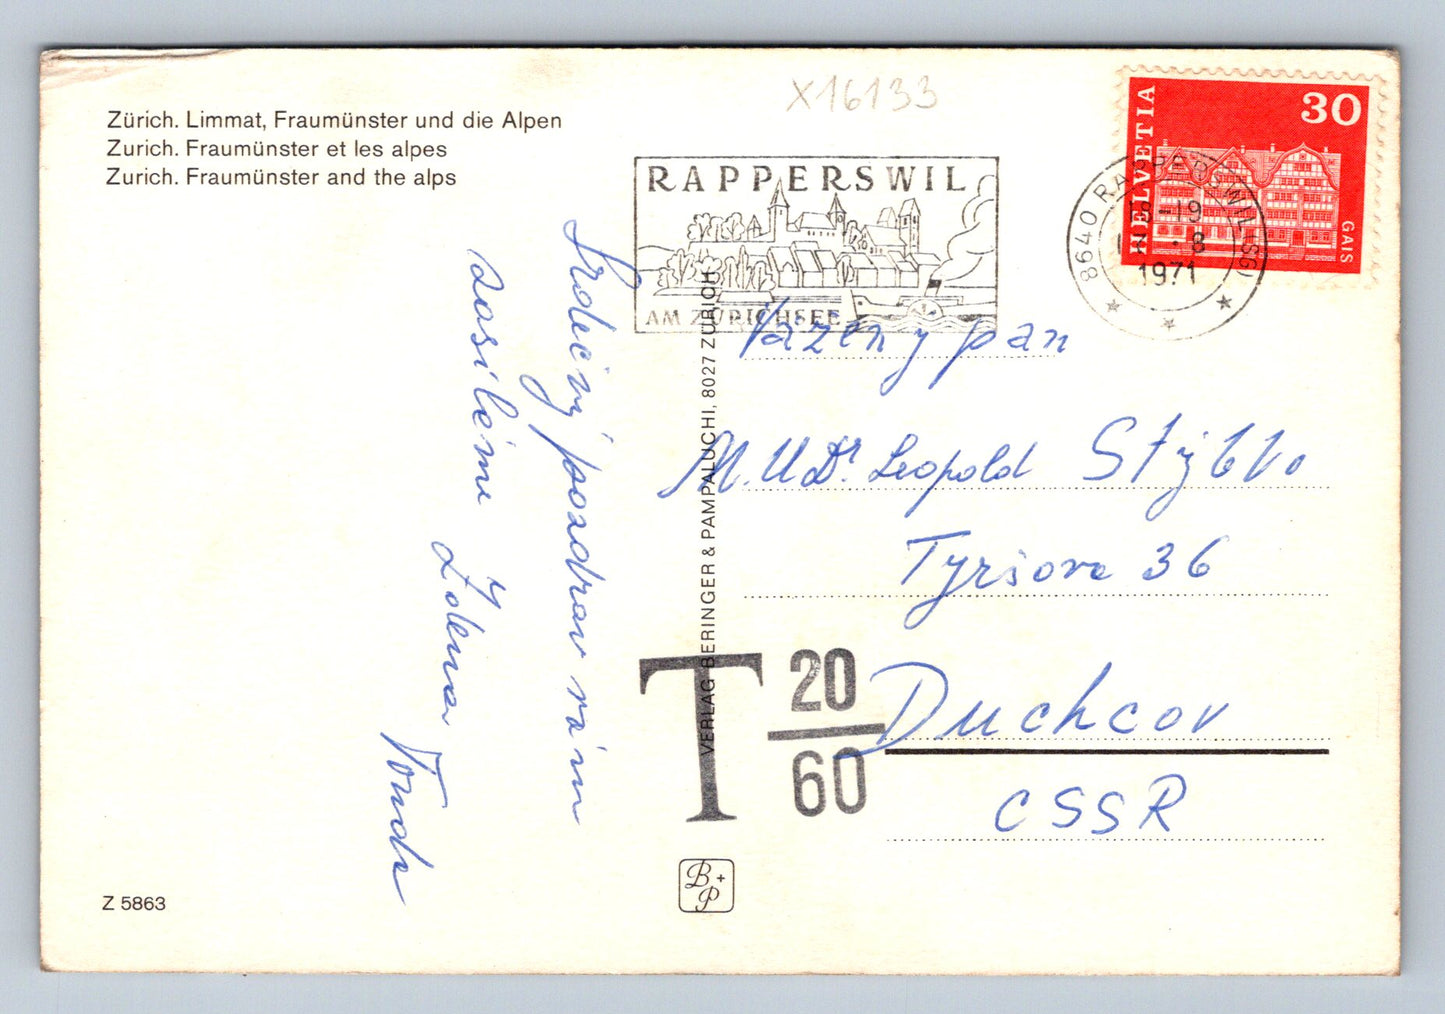 Zürich. Limmat, Fraumünster und die Alpen
Zurich. Fraumünster et les alpes
Zurich. Fraumünster and the alps
X16133
RAPPERSWIL
AM ZÜRICHSEE
8640 RAPPERSWIL (SG)
18-19
8
1971
HELVETIA
30
GAIS
Srdečný pozdrav vám
zasíláme
Zdena
Vonda
VERLAG BERINGER & PAMPALUCHI, 8027 ZÜRICH
Vážený pan
M.UDr. Leopold
Tyršova 36
Duchcov
CSSR
T 20
60
B+P
Z 5863